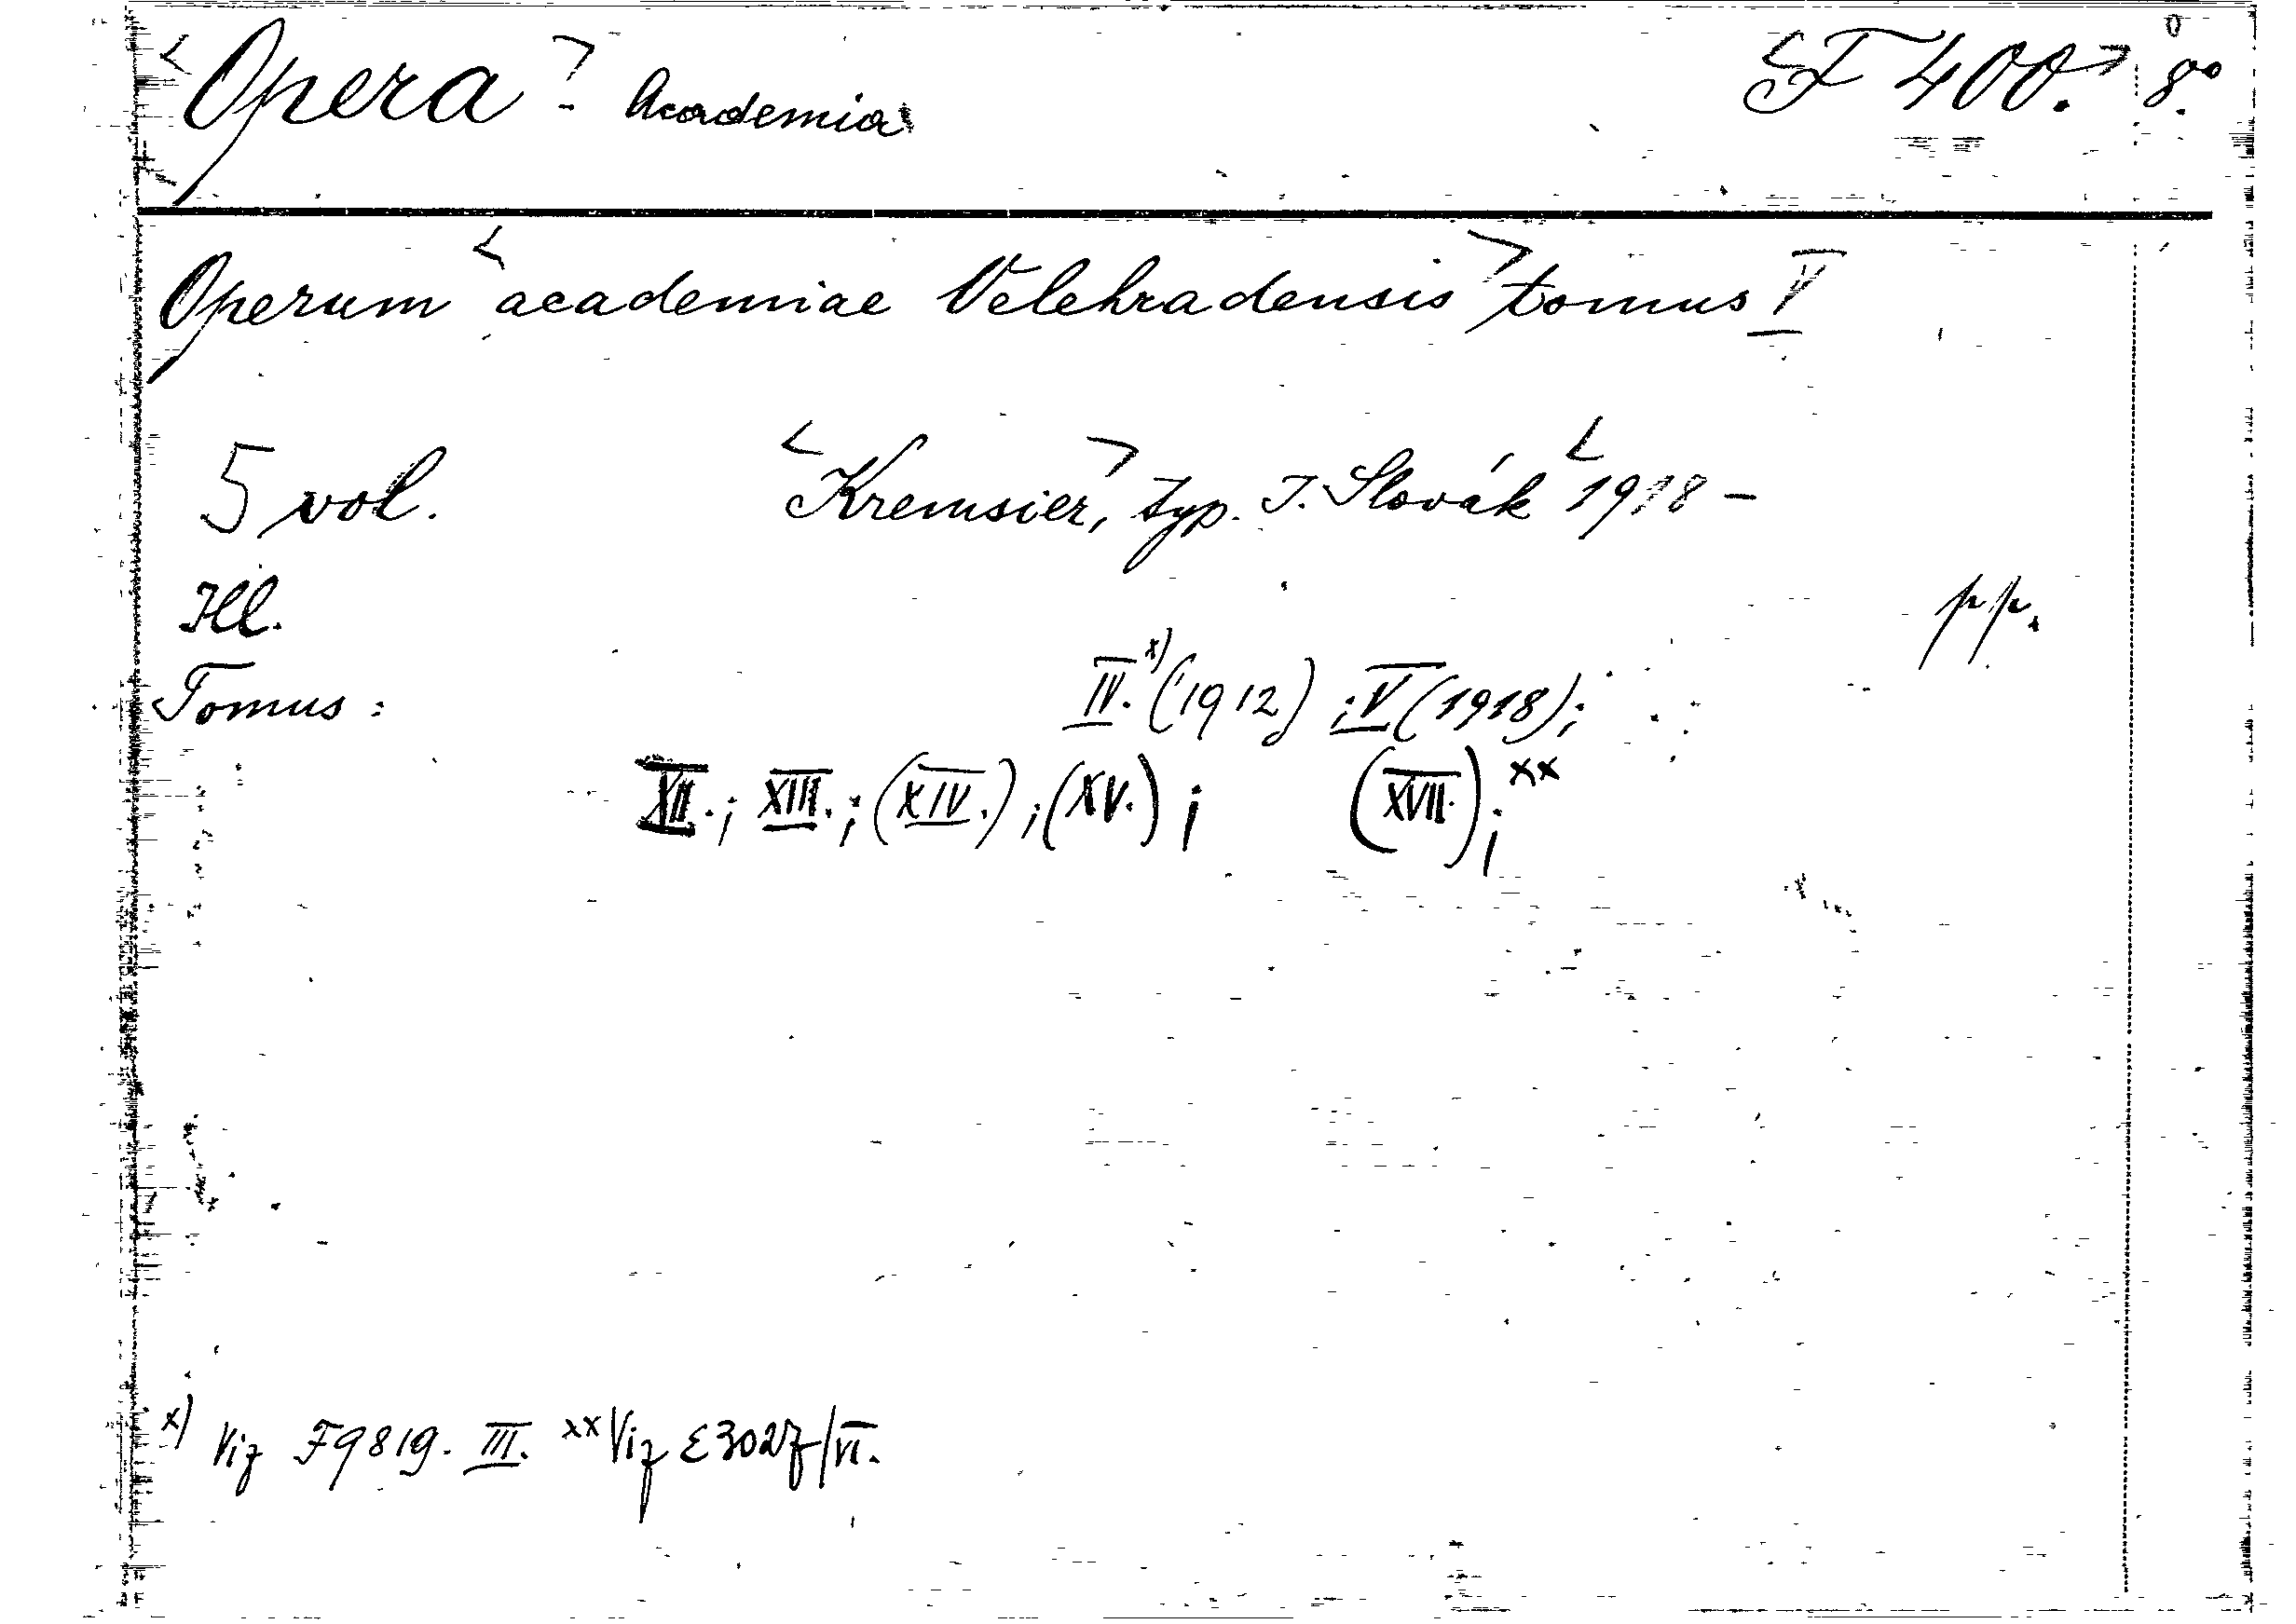 <Opera> - Academia <F 400.> 8°.
Operum <academiae Velehradensis> tomus V
5 vol. <Kremsier>, typ. J. Slovák <1918 -
Ill. pp.
Tomus: IV.x) (1912); V (1918);
XII.; XIII.; (XIV.); (XV.); (XVII.);xx
x) Viz F9819. III. xx Viz E3027/VI.